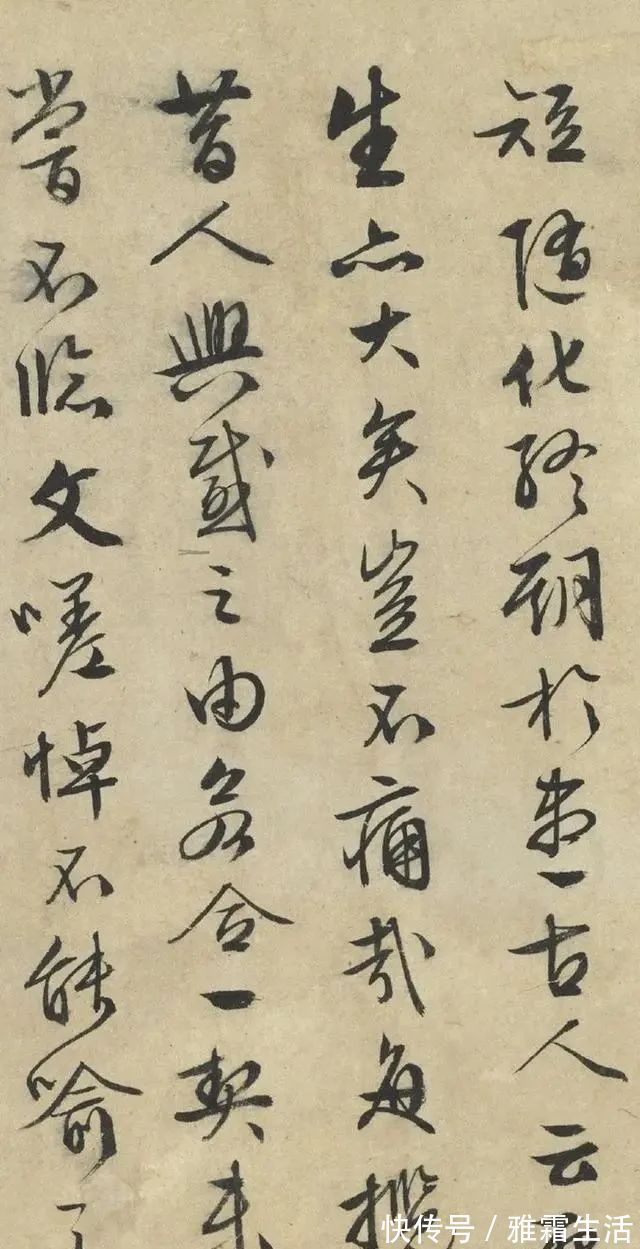 短隨化終期於盡古人云
生亦大矣豈不痛哉每攬
昔人興感之由若合一契未
嘗不臨文嗟悼不能喻
快传号 / 雅霜生活